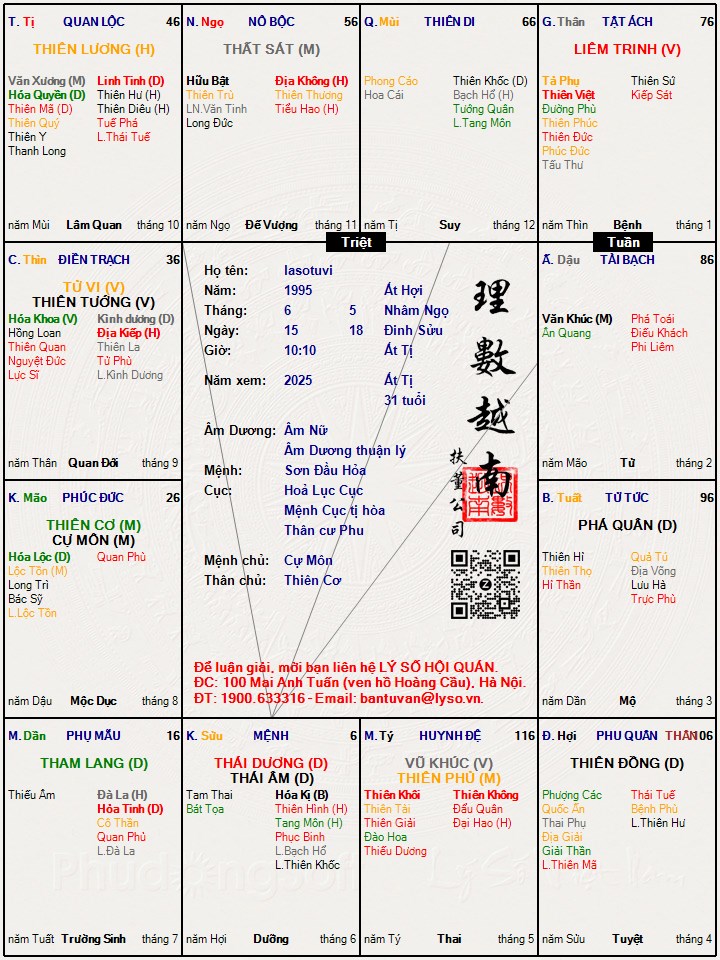 T. Tị QUAN LỘC 46
THIÊN LƯƠNG (H)
Văn Xương (M) Linh Tinh (D)
Hóa Quyền (D) Thiên Hư (H)
Thiên Mã (D) Thiên Diêu (H)
Thiên Quý Tuế Phá
Thiên Y L.Thái Tuế
Thanh Long
năm Mùi Lâm Quan tháng 10
N. Ngọ NÔ BỘC 56
THẤT SÁT (M)
Hữu Bật Địa Không (H)
Thiên Trù Thiên Thương
LN.Văn Tinh Tiểu Hao (H)
Long Đức
năm Ngọ Đế Vượng tháng 11
Q. Mùi THIÊN DI 66
Phong Cáo Thiên Khốc (D)
Hoa Cái Bạch Hổ (H)
Tướng Quân
L.Tang Môn
năm Tị Suy tháng 12
G. Thân TẬT ÁCH 76
LIÊM TRINH (V)
Tả Phụ Thiên Sứ
Thiên Việt Kiếp Sát
Đường Phù
Thiên Phúc
Thiên Đức
Phúc Đức
Tấu Thư
năm Thìn Bệnh tháng 1
Triệt
Tuần
C. Thìn ĐIỀN TRẠCH 36
TỬ VI (V)
THIÊN TƯỚNG (V)
Hóa Khoa (V) Kình dương (D)
Hồng Loan Địa Kiếp (H)
Thiên Quan Thiên La
Nguyệt Đức Tử Phù
Lực Sĩ L.Kình Dương
năm Thân Quan Đới tháng 9
Họ tên: lasotuvi
Năm: 1995 Ất Hợi
Tháng: 6 5 Nhâm Ngọ
Ngày: 15 18 Đinh Sửu
Giờ: 10:10 Ất Tị
Năm xem: 2025 Ất Tị
31 tuổi
Âm Dương: Âm Nữ
Âm Dương thuận lý
Mệnh: Sơn Đầu Hỏa
Cục: Hoả Lục Cục
Mệnh Cục tị hòa
Thân cư Phu
Mệnh chủ: Cự Môn
Thân chủ: Thiên Cơ
理數越南
扶董公司
Để luận giải, mời bạn liên hệ LÝ SỐ HỘI QUÁN.
ĐC: 100 Mai Anh Tuấn (ven hồ Hoàng Cầu), Hà Nội.
ĐT: 1900.633316 - Email: bantuvan@lyso.vn.
Ấ. Dậu TÀI BẠCH 86
Văn Khúc (M) Phá Toái
Ân Quang Điếu Khách
Phi Liêm
năm Mão Tử tháng 2
K. Mão PHÚC ĐỨC 26
THIÊN CƠ (M)
CỰ MÔN (M)
Hóa Lộc (D) Quan Phù
Lộc Tồn (M)
Long Trì
Bác Sỹ
L.Lộc Tồn
năm Dậu Mộc Dục tháng 8
B. Tuất TỬ TỨC 96
PHÁ QUÂN (D)
Thiên Hỉ Quả Tú
Thiên Thọ Địa Võng
Hỉ Thần Lưu Hà
Trực Phù
năm Dần Mộ tháng 3
M. Dần PHỤ MẪU 16
THAM LANG (D)
Thiếu Âm Đà La (H)
Hỏa Tinh (D)
Cô Thần
Quan Phủ
L.Đà La
năm Tuất Trường Sinh tháng 7
K. Sửu MỆNH 6
THÁI DƯƠNG (D)
THÁI ÂM (D)
Tam Thai Hóa Kị (B)
Bát Tọa Thiên Hình (H)
Tang Môn (H)
Phục Binh
L.Bạch Hổ
L.Thiên Khốc
năm Hợi Dưỡng tháng 6
M. Tý HUYNH ĐỆ 116
VŨ KHÚC (V)
THIÊN PHỦ (M)
Thiên Khôi Thiên Không
Thiên Tài Đẩu Quân
Thiên Giải Đại Hao (H)
Đào Hoa
Thiếu Dương
năm Tý Thai tháng 5
Đ. Hợi PHU QUÂN THÂN 106
THIÊN ĐỒNG (D)
Phượng Các Thái Tuế
Quốc Ấn Bệnh Phù
Thai Phụ L.Thiên Hư
Địa Giải
Giải Thần
L.Thiên Mã
năm Sửu Tuyệt tháng 4